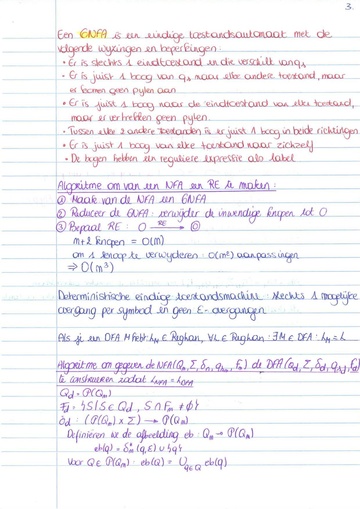 3.
Een GNFA is een eindige toestandsautomaat met de
volgende wijzingen en beperkingen:
• Er is slechts 1 eindtoestand en die verschilt van qs
• Er is juist 1 boog van qs naar elke andere toestand, maar
er komen geen pijlen aan
• Er is juist 1 boog naar de eindtoestand van elke toestand,
maar er vertrekken geen pijlen.
• Tussen elke 2 andere toestanden is er juist 1 boog in beide richtingen
• Er is juist 1 boog van elke toestand naar zichzelf
• De bogen hebben een reguliere expressie als label
Algoritme om van een NFA een RE te maken:
① Maak van de NFA een GNFA
② Reduceer de GNFA: verwijder de inwendige knopen tot 0
③ Bepaal RE: O RE→ ◎
m+2 knopen = O(m)
om 1 knoop te verwijderen: O(m²) aanpassingen
⇒ O(m³)
Deterministische eindige toestandsmachine: slechts 1 mogelijke
overgang per symbool en geen ε-overgangen
Als je een DFA M hebt: L_M ∈ Reglan, ∀L ∈ Reglan: ∃M ∈ DFA: L_M = L
Algoritme om gegeven de NFA(Qn, Σ, δn, qsn, Fn) de DFA(Qd, Σ, δd, qsd, Fd)
te construeren zodat L_NFA = L_DFA
Qd = P(Qn)
Fd = {S|S ∈ Qd, S ∩ Fn ≠ ∅}
δd: (P(Qn) × Σ) → P(Qn)
Definiëren we de afbeelding eb: Qn → P(Qn)
eb(q) = δn*(q,ε) ∪ {q}
Voor Q ∈ P(Qn): eb(Q) = ∪q∈Q eb(q)